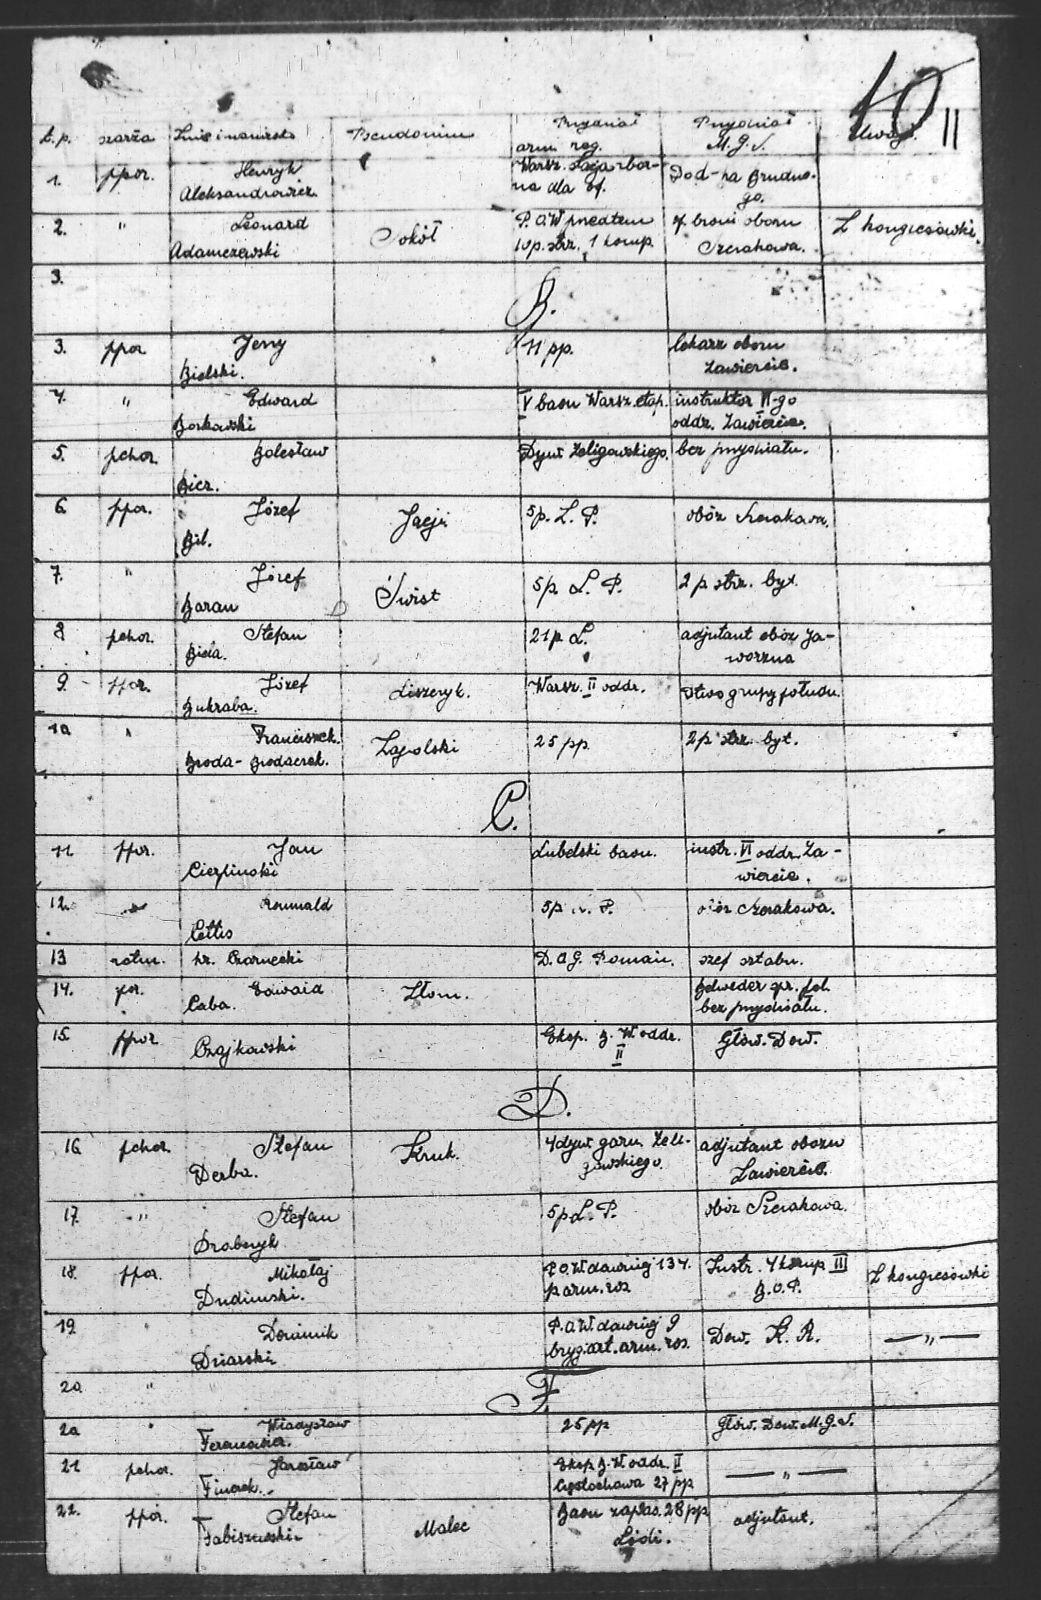 10 11
L.p. szarża Imię i nazwisko Pseudonim Przydział Przydział Uwagi
arm. reg. M.G.S.
1. ppor. Henryk Warsz. Stacja zbor-
Aleksandrowicz na dla of.
go.
2. " Leonard Sokół P.O.W. przedtem of. broni obozu Z kongresówki.
Adamczewski 10 p. strz. 1 komp. Szczakowa.
3.
B.
3. ppor. Jerzy 11 pp. lekarz obozu
Bielski. Zawiercie.
4. " Edward V baon Warsz. etap. instruktor VI-go
Borkowski oddz. Zawiercie.
5. pchor. Bolesław Dyw. Żeligowskiego. bez przydziału.
Bier.
6. ppor. Józef 5 p. L. P. obóz Szczakowa.
Bil.
7. " Józef Świst 5 p. L. P. 2 p. strz. byt.
Baran
8 pchor. Stefan 21 p. L. adjutant obóz Ja-
Biela. worzna
9. ppor. Józef Liszczyk. Warsz. II oddz. Dtwo grupy połudn.
Bukraba.
10 " Franciszek. Zapolski 25 pp. 2 p. strz. byt.
Broda-Brodaczek.
C.
11 ppor. Jan Lubelski baon. instr. VI oddz. Za-
Cieplinski wiercie.
12. " Romuald 5 p. L. P. obóz Szczakowa.
Cettis
13 rotm. hr. Czarnecki D.O.G. Poznań. szef sztabu.
14. por. Edward Złom. Belweder gr. płd.
Caba. bez przydziału.
15. ppor. Eksp. B. W. oddz. Głów. Dow.
Czajkowski II
D.
16. pchor. Stefan Kruk. 4 dyw. gen. Żeli- adjutant obozu
Derba. gowskiego. Zawiercie.
17. " Stefan 5 p. L. P. obóz Szczakowa.
Drabczyk
18. ppor. Mikołaj P.O.W. dawniej 134. Instr. 4 komp. III Z kongresówki
Dudzinski. p. arm. ros. B.O.P.
19. Dominik P.O.W. dawniej 9 Dow. K. R. — " —
Dziarski. bryg. art. arm. ros.
20 "
F.
20 " Władysław 25 pp Głów. Dow. M.G.S.
Ferencowicz.
21 pchor. Jarosław Eksp. B. W. oddz. II — " —
Finczek. Częstochowa 27 pp
22. ppor. Stefan Malec Baon zapas. 28 pp adjutant.
Fabiszewski Łódź.